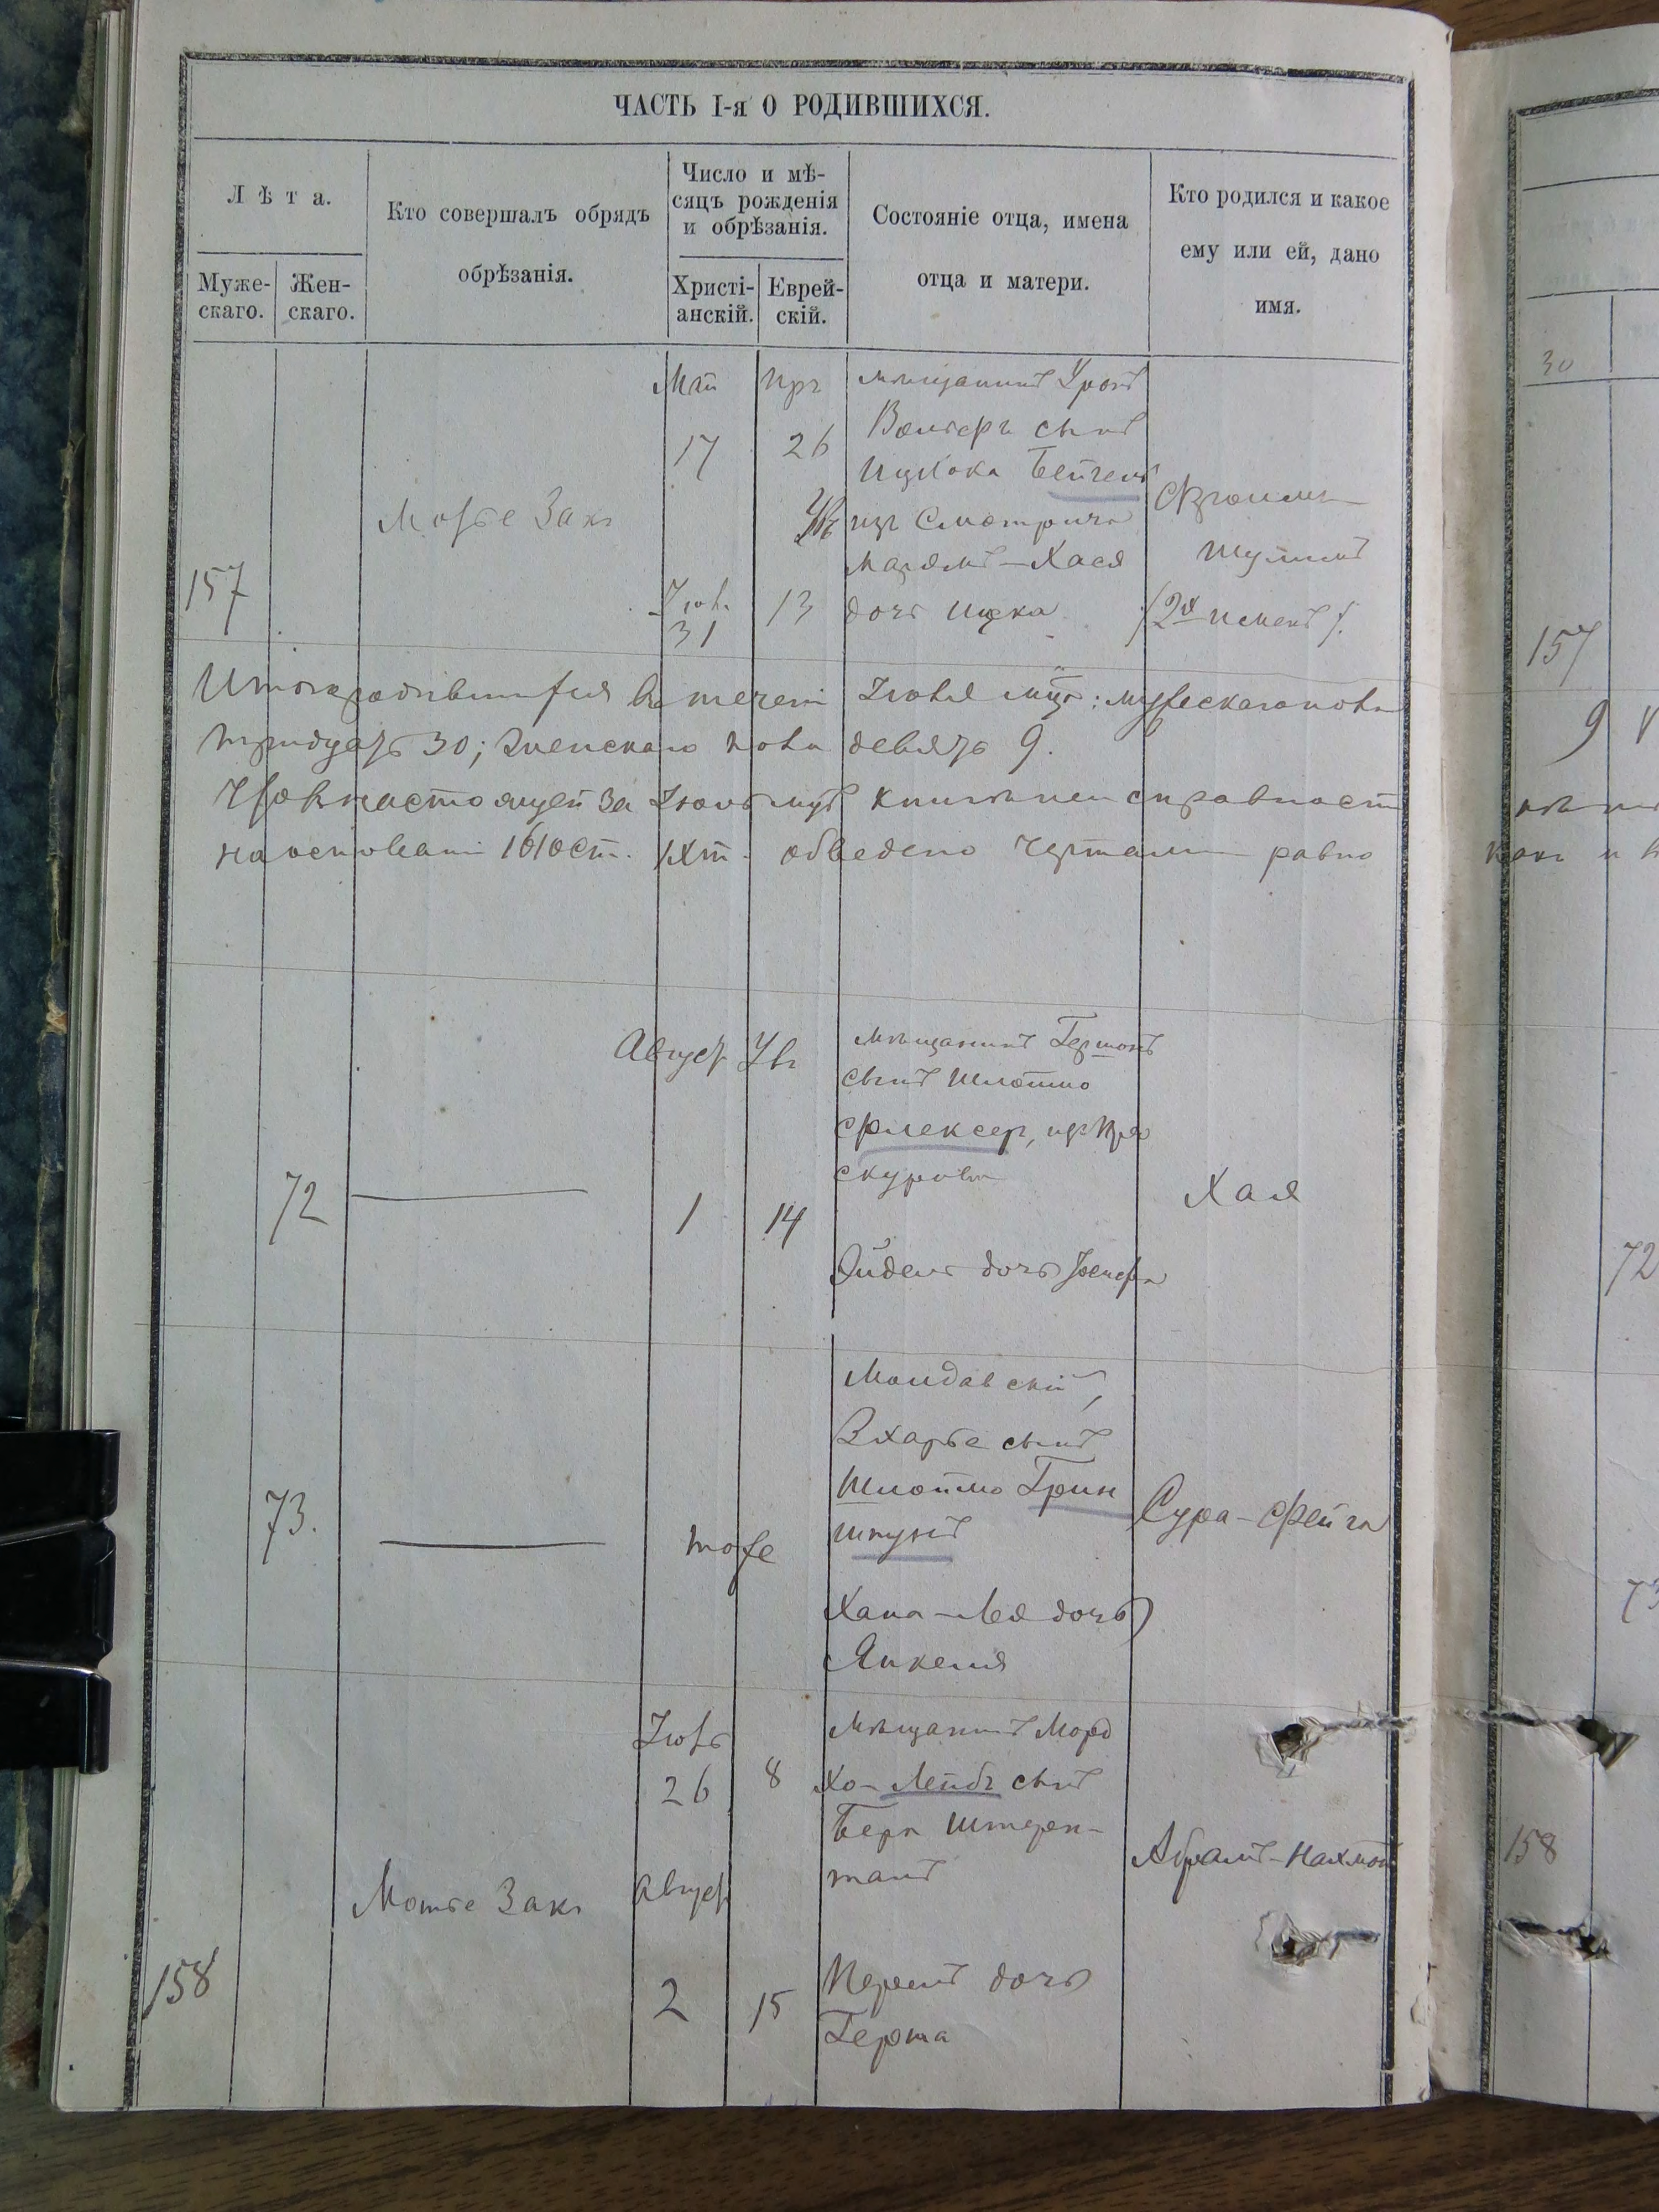 ЧАСТЬ I-я О РОДИВШИХСЯ.
Лѣта.
Муже-
скаго.
Жен-
скаго.
Кто совершалъ обрядъ
обрѣзанія.
Число и мѣ-
сяцъ рожденія
и обрѣзанія.
Христі-
анскій.
Еврей-
скій.
Состояніе отца, имена
отца и матери.
Кто родился и какое
ему или ей, дано
имя.
157
Мошe Закъ
Маi
17
31
26
13
мѣщанинъ
Вольфъ сынъ
Ицхока Бейгель
изъ Смотрича
Хася
дочь Ицка
Сроиль
2х именъ
30
157
Итого родившихся въ течени Июля мца: мужескаго пола
тридцать 30; женскаго пола девять 9.
настоящей за Июль книгѣ неисправност
на основаніи 1610 ст. IX т. обведено чертами равно
9
какъ и в
72
Август
1
14
мѣщанинъ Гершонъ
сынъ Шлоймо
Флексер, из Про
скурова
Эйдель дочь Иосифа
Хая
72
73.
тоже
Молдавскій,
Зхарье сынъ
Шлоймо Грин
шпунъ
Хана-Лея дочь
Янкеля
Сура-Фейга
73
158
Мошье Закъ
Июль
26
8
Август
2
15
Мѣщанинъ Мордхо-Лейбъ сынъ
Бера Штерен-
талъ
Перель дочь
Герша
Абрамъ-Нахман
158